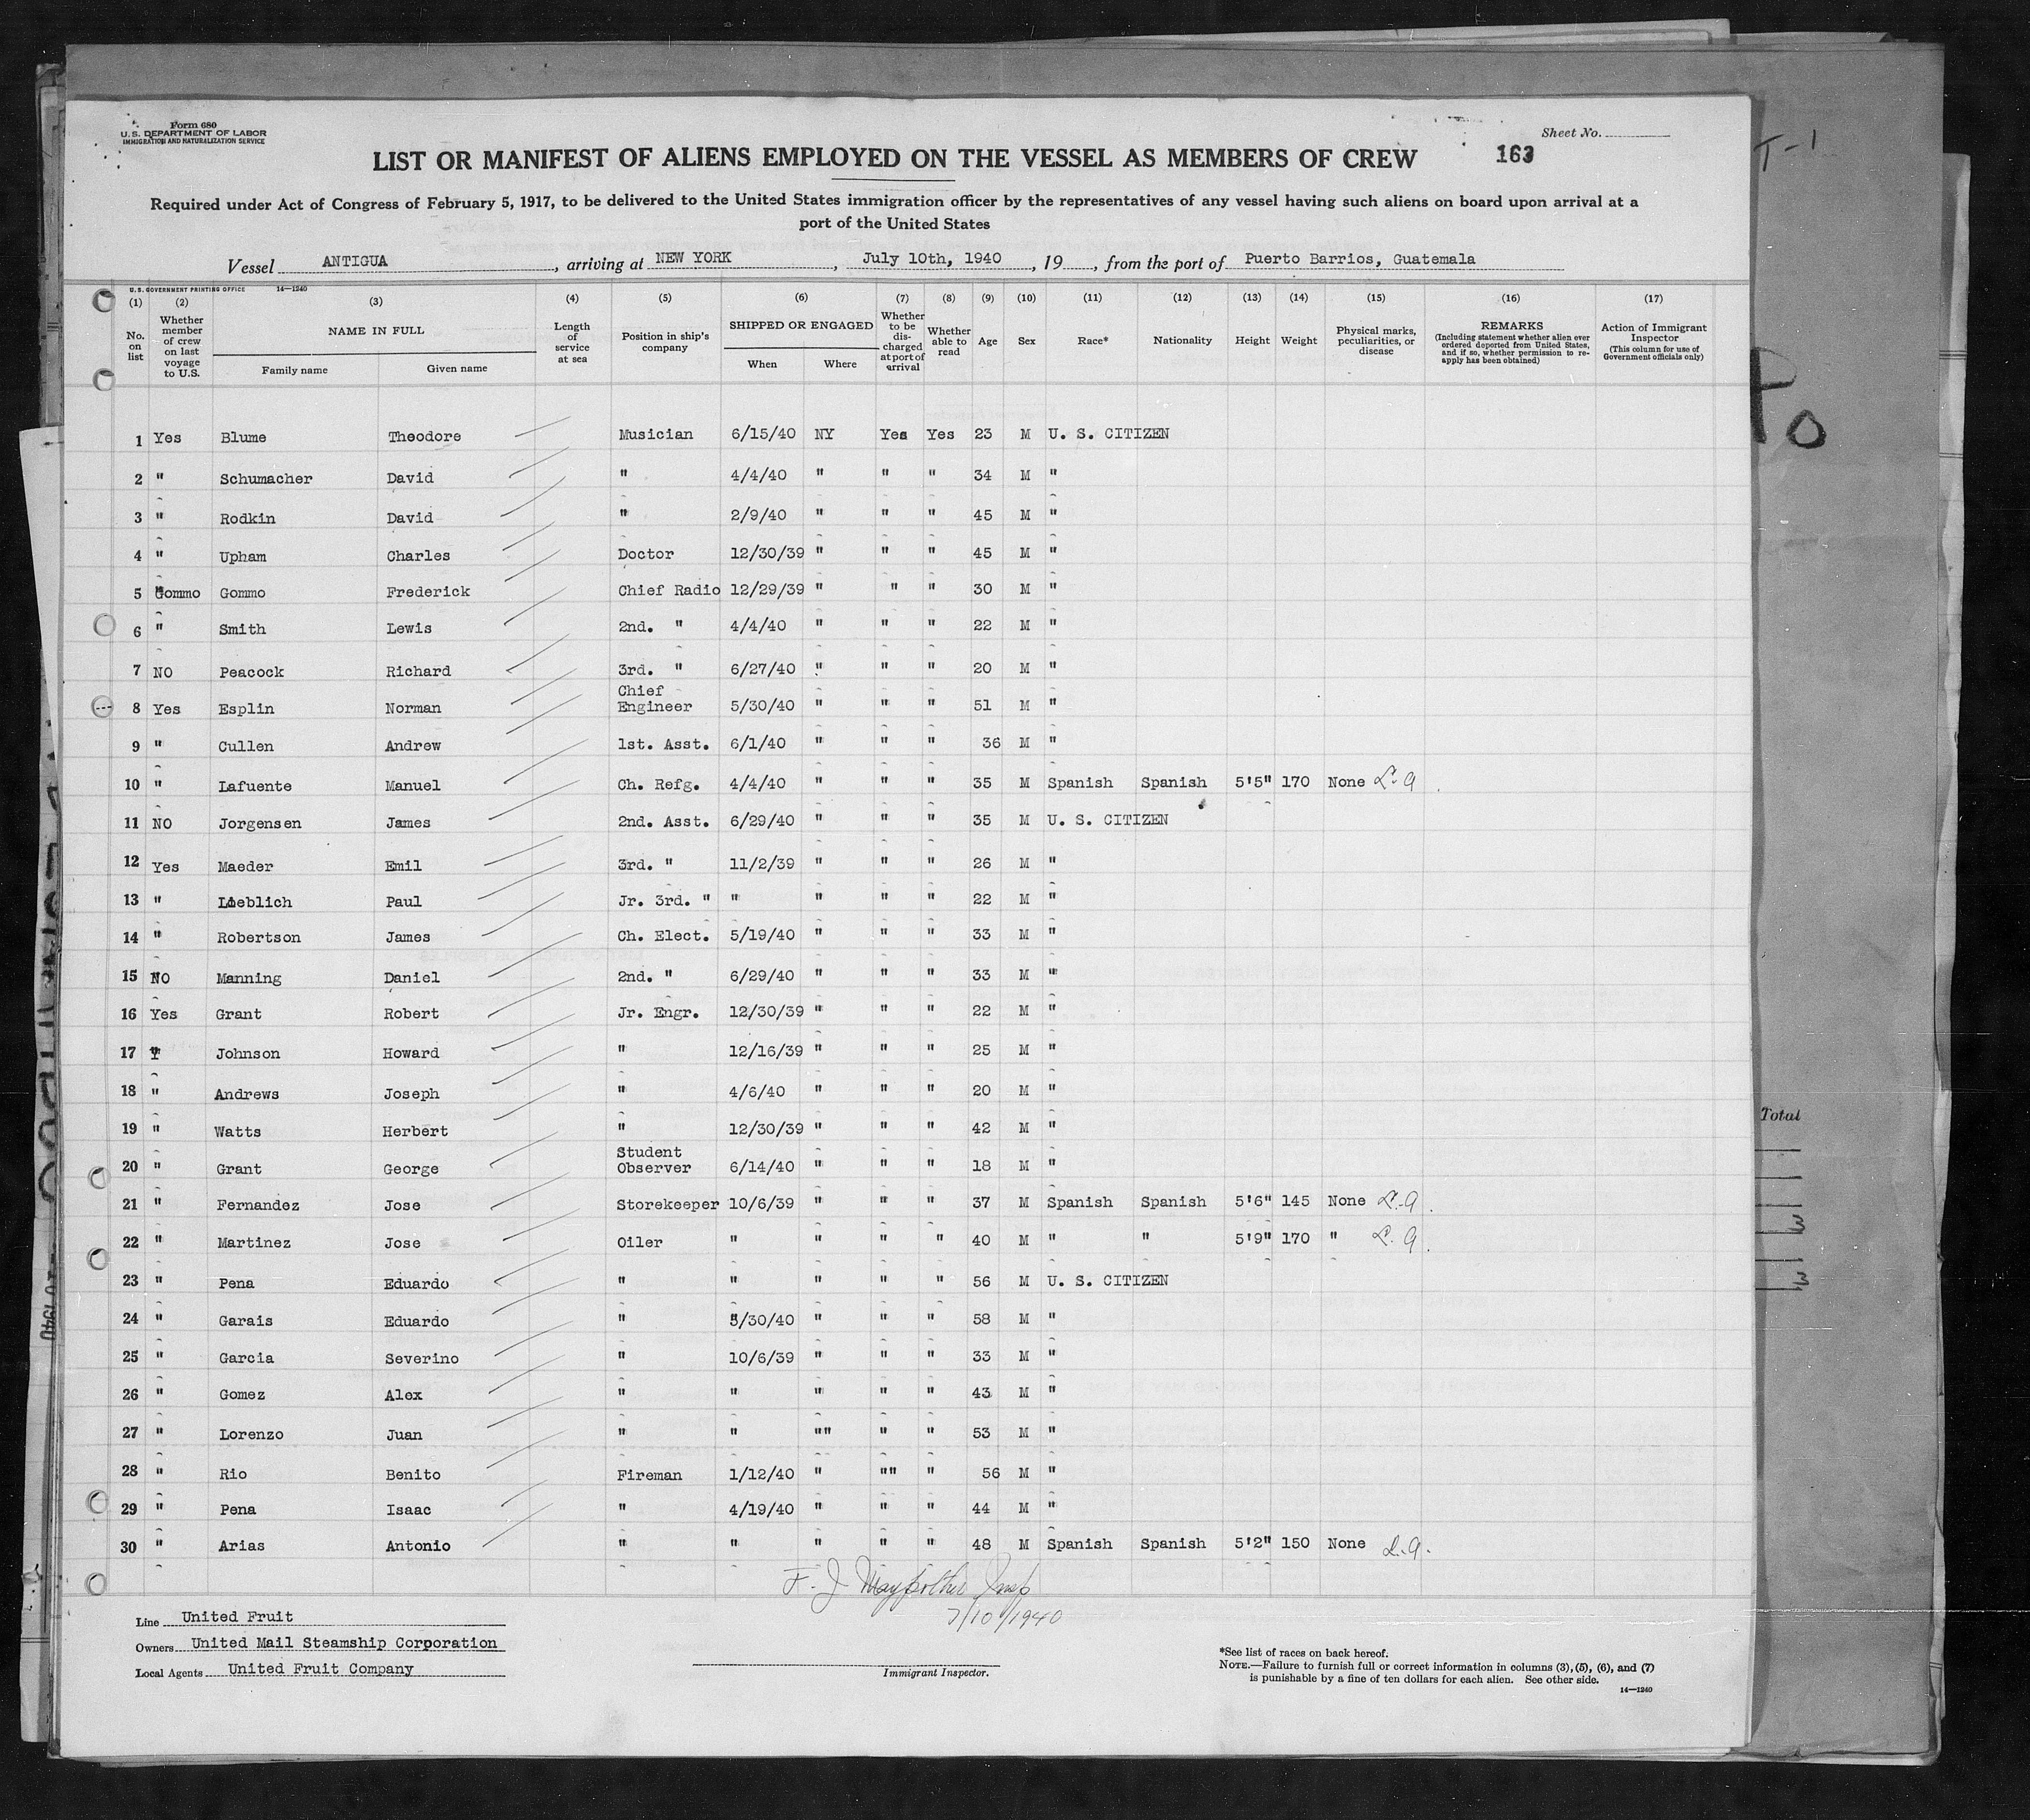 Form 680
U. S. DEPARTMENT OF LABOR
IMMIGRATION AND NATURALIZATION SERVICE
Sheet No.
LIST OR MANIFEST OF ALIENS EMPLOYED ON THE VESSEL AS MEMBERS OF CREW 163
Required under Act of Congress of February 5, 1917, to be delivered to the United States immigration officer by the representatives of any vessel having such aliens on board upon arrival at a
port of the United States
Vessel ANTIGUA, arriving at NEW YORK, July 10th, 1940, 19, from the port of Puerto Barrios, Guatemala
U. S. GOVERNMENT PRINTING OFFICE 14—1240
(1) (2) (3) (4) (5) (6) (7) (8) (9) (10) (11) (12) (13) (14) (15) (16) (17)
No. on list
Whether member of crew on last voyage to U.S.
NAME IN FULL
Family name Given name
Length of service at sea
Position in ship's company
SHIPPED OR ENGAGED
When Where
Whether to be discharged at port of arrival
Whether able to read
Age
Sex
Race*
Nationality
Height
Weight
Physical marks, peculiarities, or disease
REMARKS
(Including statement whether alien ever ordered deported from United States, and if so, whether permission to reapply has been obtained)
Action of Immigrant Inspector
(This column for use of Government officials only)
1 Yes Blume Theodore Musician 6/15/40 NY Yes Yes 23 M U. S. CITIZEN
2 " Schumacher David " 4/4/40 " " " 34 M "
3 " Rodkin David " 2/9/40 " " " 45 M "
4 " Upham Charles Doctor 12/30/39 " " " 45 M "
5 Gommo Gommo Frederick Chief Radio 12/29/39 " " " 30 M "
6 " Smith Lewis 2nd. " 4/4/40 " " " 22 M "
7 NO Peacock Richard 3rd. " 6/27/40 " " " 20 M "
8 Yes Esplin Norman Chief Engineer 5/30/40 " " " 51 M "
9 " Cullen Andrew 1st. Asst. 6/1/40 " " " 36 M "
10 " Lafuente Manuel Ch. Refg. 4/4/40 " " " 35 M Spanish Spanish 5'5" 170 None
11 NO Jorgensen James 2nd. Asst. 6/29/40 " " " 35 M U. S. CITIZEN
12 Yes Maeder Emil 3rd. " 11/2/39 " " " 26 M "
13 " Loeblich Paul Jr. 3rd. " " " " " 22 M "
14 " Robertson James Ch. Elect. 5/19/40 " " " 33 M "
15 NO Manning Daniel 2nd. " 6/29/40 " " " 33 M "
16 Yes Grant Robert Jr. Engr. 12/30/39 " " " 22 M "
17 " Johnson Howard " 12/16/39 " " " 25 M "
18 " Andrews Joseph " 4/6/40 " " " 20 M "
19 " Watts Herbert " 12/30/39 " " " 42 M "
20 " Grant George Student Observer 6/14/40 " " " 18 M "
21 " Fernandez Jose Storekeeper 10/6/39 " " " 37 M Spanish Spanish 5'6" 145 None
22 " Martinez Jose Oiler " " " " 40 M " " 5'9" 170 "
23 " Pena Eduardo " " " " " 56 M U. S. CITIZEN
24 " Garais Eduardo " 5/30/40 " " " 58 M "
25 " Garcia Severino " 10/6/39 " " " 33 M "
26 " Gomez Alex " " " " " 43 M "
27 " Lorenzo Juan " " "" " " 53 M "
28 " Rio Benito Fireman 1/12/40 " "" " 56 M "
29 " Pena Isaac " 4/19/40 " " " 44 M "
30 " Arias Antonio " " " " " 48 M Spanish Spanish 5'2" 150 None
7/10/1940
Line United Fruit
Owners United Mail Steamship Corporation
Local Agents United Fruit Company
Immigrant Inspector.
*See list of races on back hereof.
NOTE.—Failure to furnish full or correct information in columns (3), (5), (6), and (7)
is punishable by a fine of ten dollars for each alien. See other side.
14—1240
Total